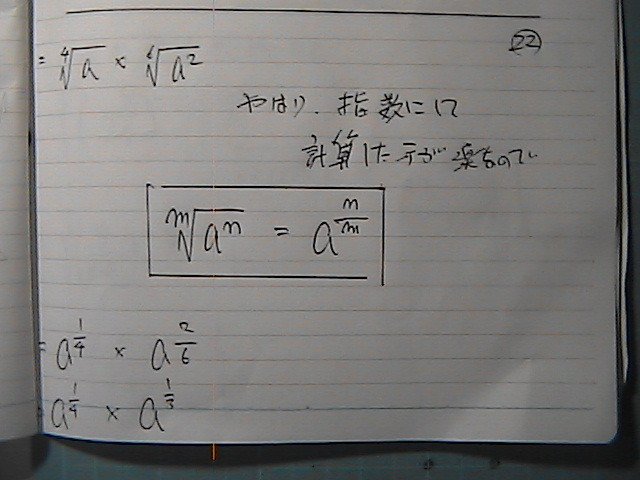 ㉒
= ∜a × ⁶√a²
やはり、指数にして
計算した方が楽なので
ᵐ√aⁿ = a^(n/m)
= a^(1/4) × a^(2/6)
= a^(1/4) × a^(1/3)